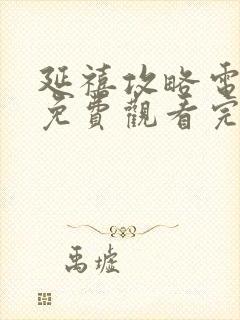 延禧攻略電
免費觀看完
禹墟